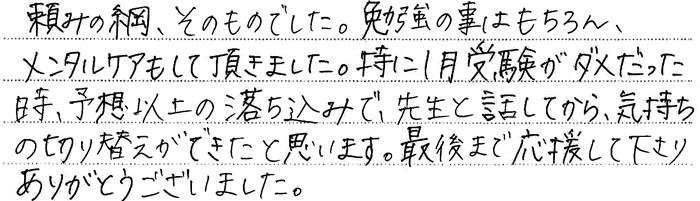 頼みの綱、そのものでした。勉強の事はもちろん、
メンタルケアもして頂きました。特に1月受験がダメだった
時、予想以上の落ち込みで、先生と話してから、気持ち
の切り替えができたと思います。最後まで応援して下さり
ありがとうございました。